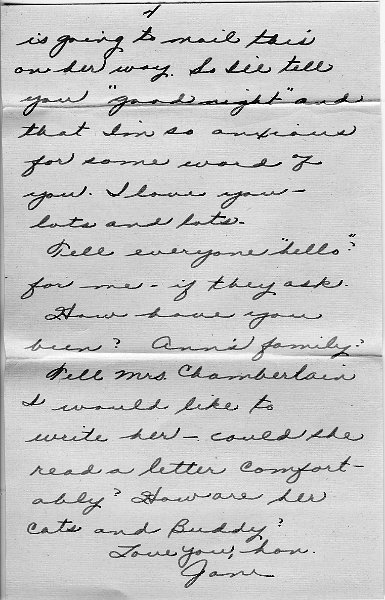 4
is going to mail this
on her way. So I'll tell
you "good night" and
that I'm so anxious
for some word of
you. I love you -
lots and lots.
Tell everyone "hello"
for me - if they ask.
How have you
been? Ann's family?
Tell Mrs. Chamberlain
I would like to
write her - could she
read a letter comfort-
ably? How are her
cats and Buddy?
Love you, hon.
Jane